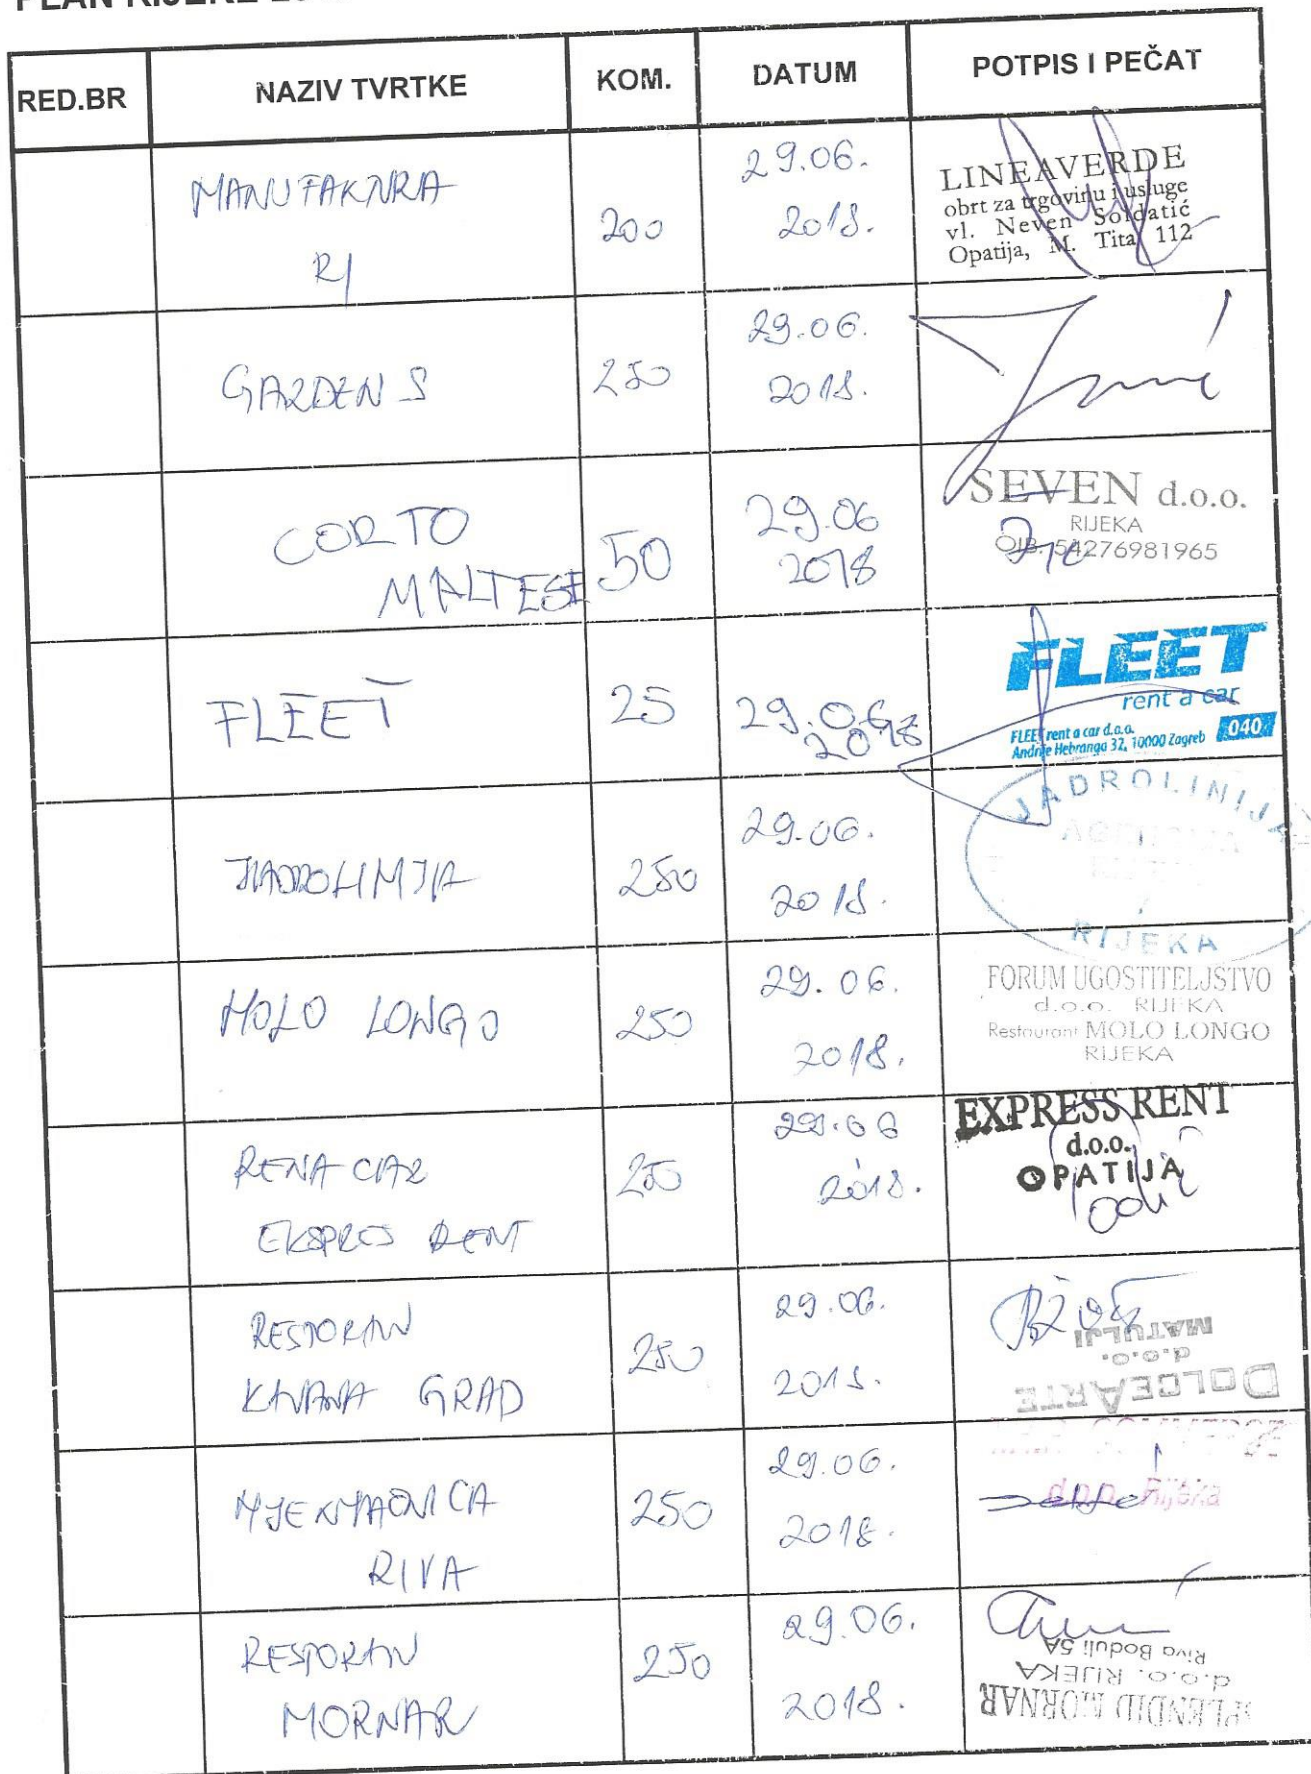 PLAN RIJEKE
RED.BR NAZIV TVRTKE KOM. DATUM POTPIS I PEČAT
MANUFAKTURA
RI
200
29.06.
2018.
LINEAVERDE
obrt za trgovinu i usluge
vl. Neven Soldatić
Opatija, M. Tita 112
GARDENS
250
29.06.
2018.
CORTO
MALTESE
50
29.06
2018
SEVEN d.o.o.
RIJEKA
OIB: 54276981965
FLEET
25
29.06
2018
FLEET
rent a car
FLEET rent a car d.o.o.
Andrije Hebranga 32, 10000 Zagreb
040
JADROLINIJA
250
29.06.
2018.
JADROLINIJA
AGENCIJA
RIJEKA
MOLO LONGO
250
29.06.
2018.
FORUM UGOSTITELJSTVO
d.o.o. RIJEKA
Restaurant MOLO LONGO
RIJEKA
RENTA CAR
EKSPRES RENT
250
29.06
2018.
EXPRESS RENT
d.o.o.
OPATIJA
RESTORAN
KAVANA GRAD
250
29.06.
2018.
DOLCEARTE
d.o.o.
MATULJI
MJENJAČNICA
RIVA
250
29.06.
2018.
d.o.o. Rijeka
RESTORAN
MORNAR
250
29.06.
2018.
SPLENDID MORNAR
d.o.o. RIJEKA
Riva Boduli 5A